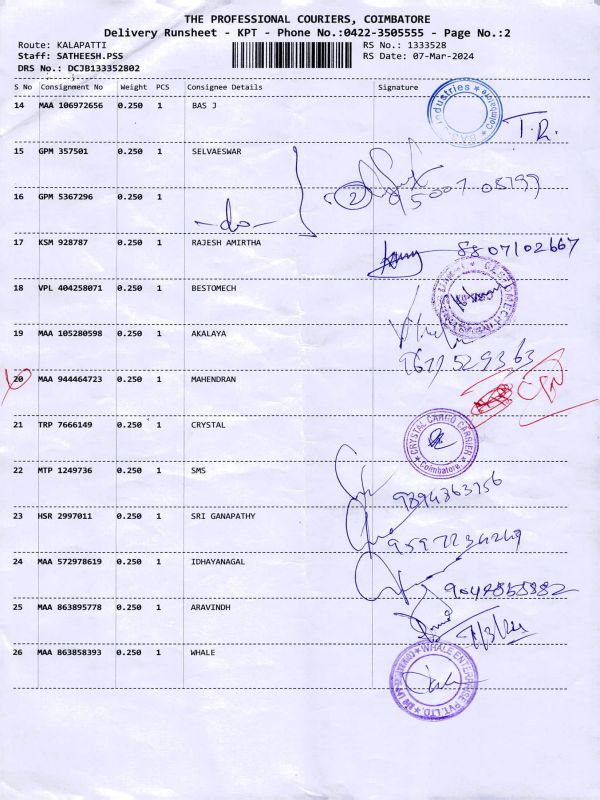 THE PROFESSIONAL COURIERS, COIMBATORE
Delivery Runsheet - KPT - Phone No.:0422-3505555 - Page No.:2
Route: KALAPATTI RS No.: 1333528
Staff: SATHEESH.PSS RS Date: 07-Mar-2024
DRS No.: DCJB133352802
S No Consignment No Weight PCS Consignee Details Signature
14 MAA 106972656 0.250 1 BAS J
T.R.
15 GPM 357501 0.250 1 SELVAESWAR
16 GPM 5367296 0.250 1
2
-do-
17 KSM 928787 0.250 1 RAJESH AMIRTHA
8807102667
18 VPL 404258071 0.250 1 BESTOMECH
19 MAA 105280598 0.250 1 AKALAYA
20 MAA 944464723 0.250 1 MAHENDRAN
21 TRP 7666149 0.250 1 CRYSTAL
CRYSTAL CARGO CARRIER
Coimbatore
22 MTP 1249736 0.250 1 SMS
9894863756
23 HSR 2997011 0.250 1 SRI GANAPATHY
24 MAA 572978619 0.250 1 IDHAYANAGAL
25 MAA 863895778 0.250 1 ARAVINDH
26 MAA 863858393 0.250 1 WHALE
WHALE ENTERPRISE PVT.LTD.